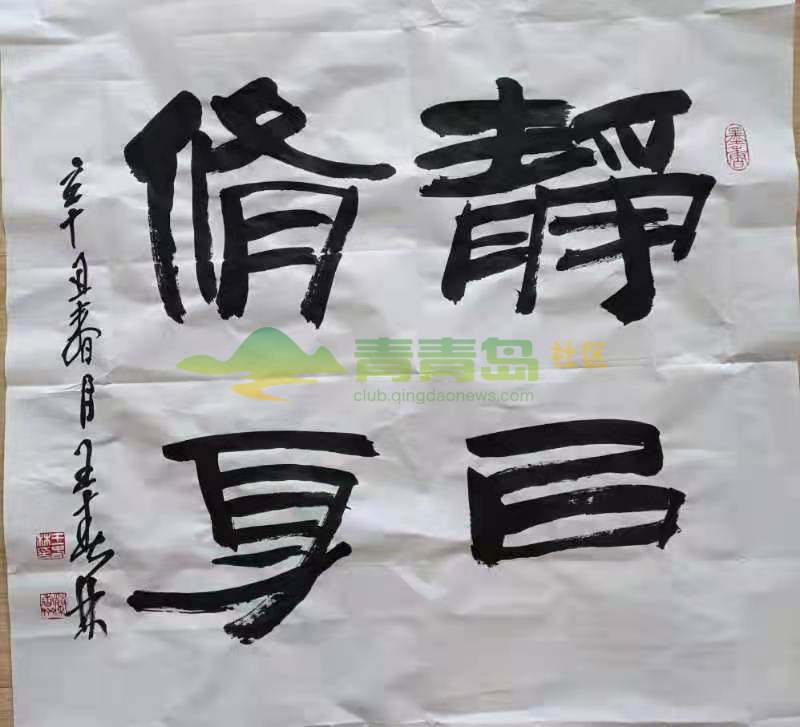 靜㠯
脩身
辛丑春月王
青青岛社区
club.qingdaonews.com